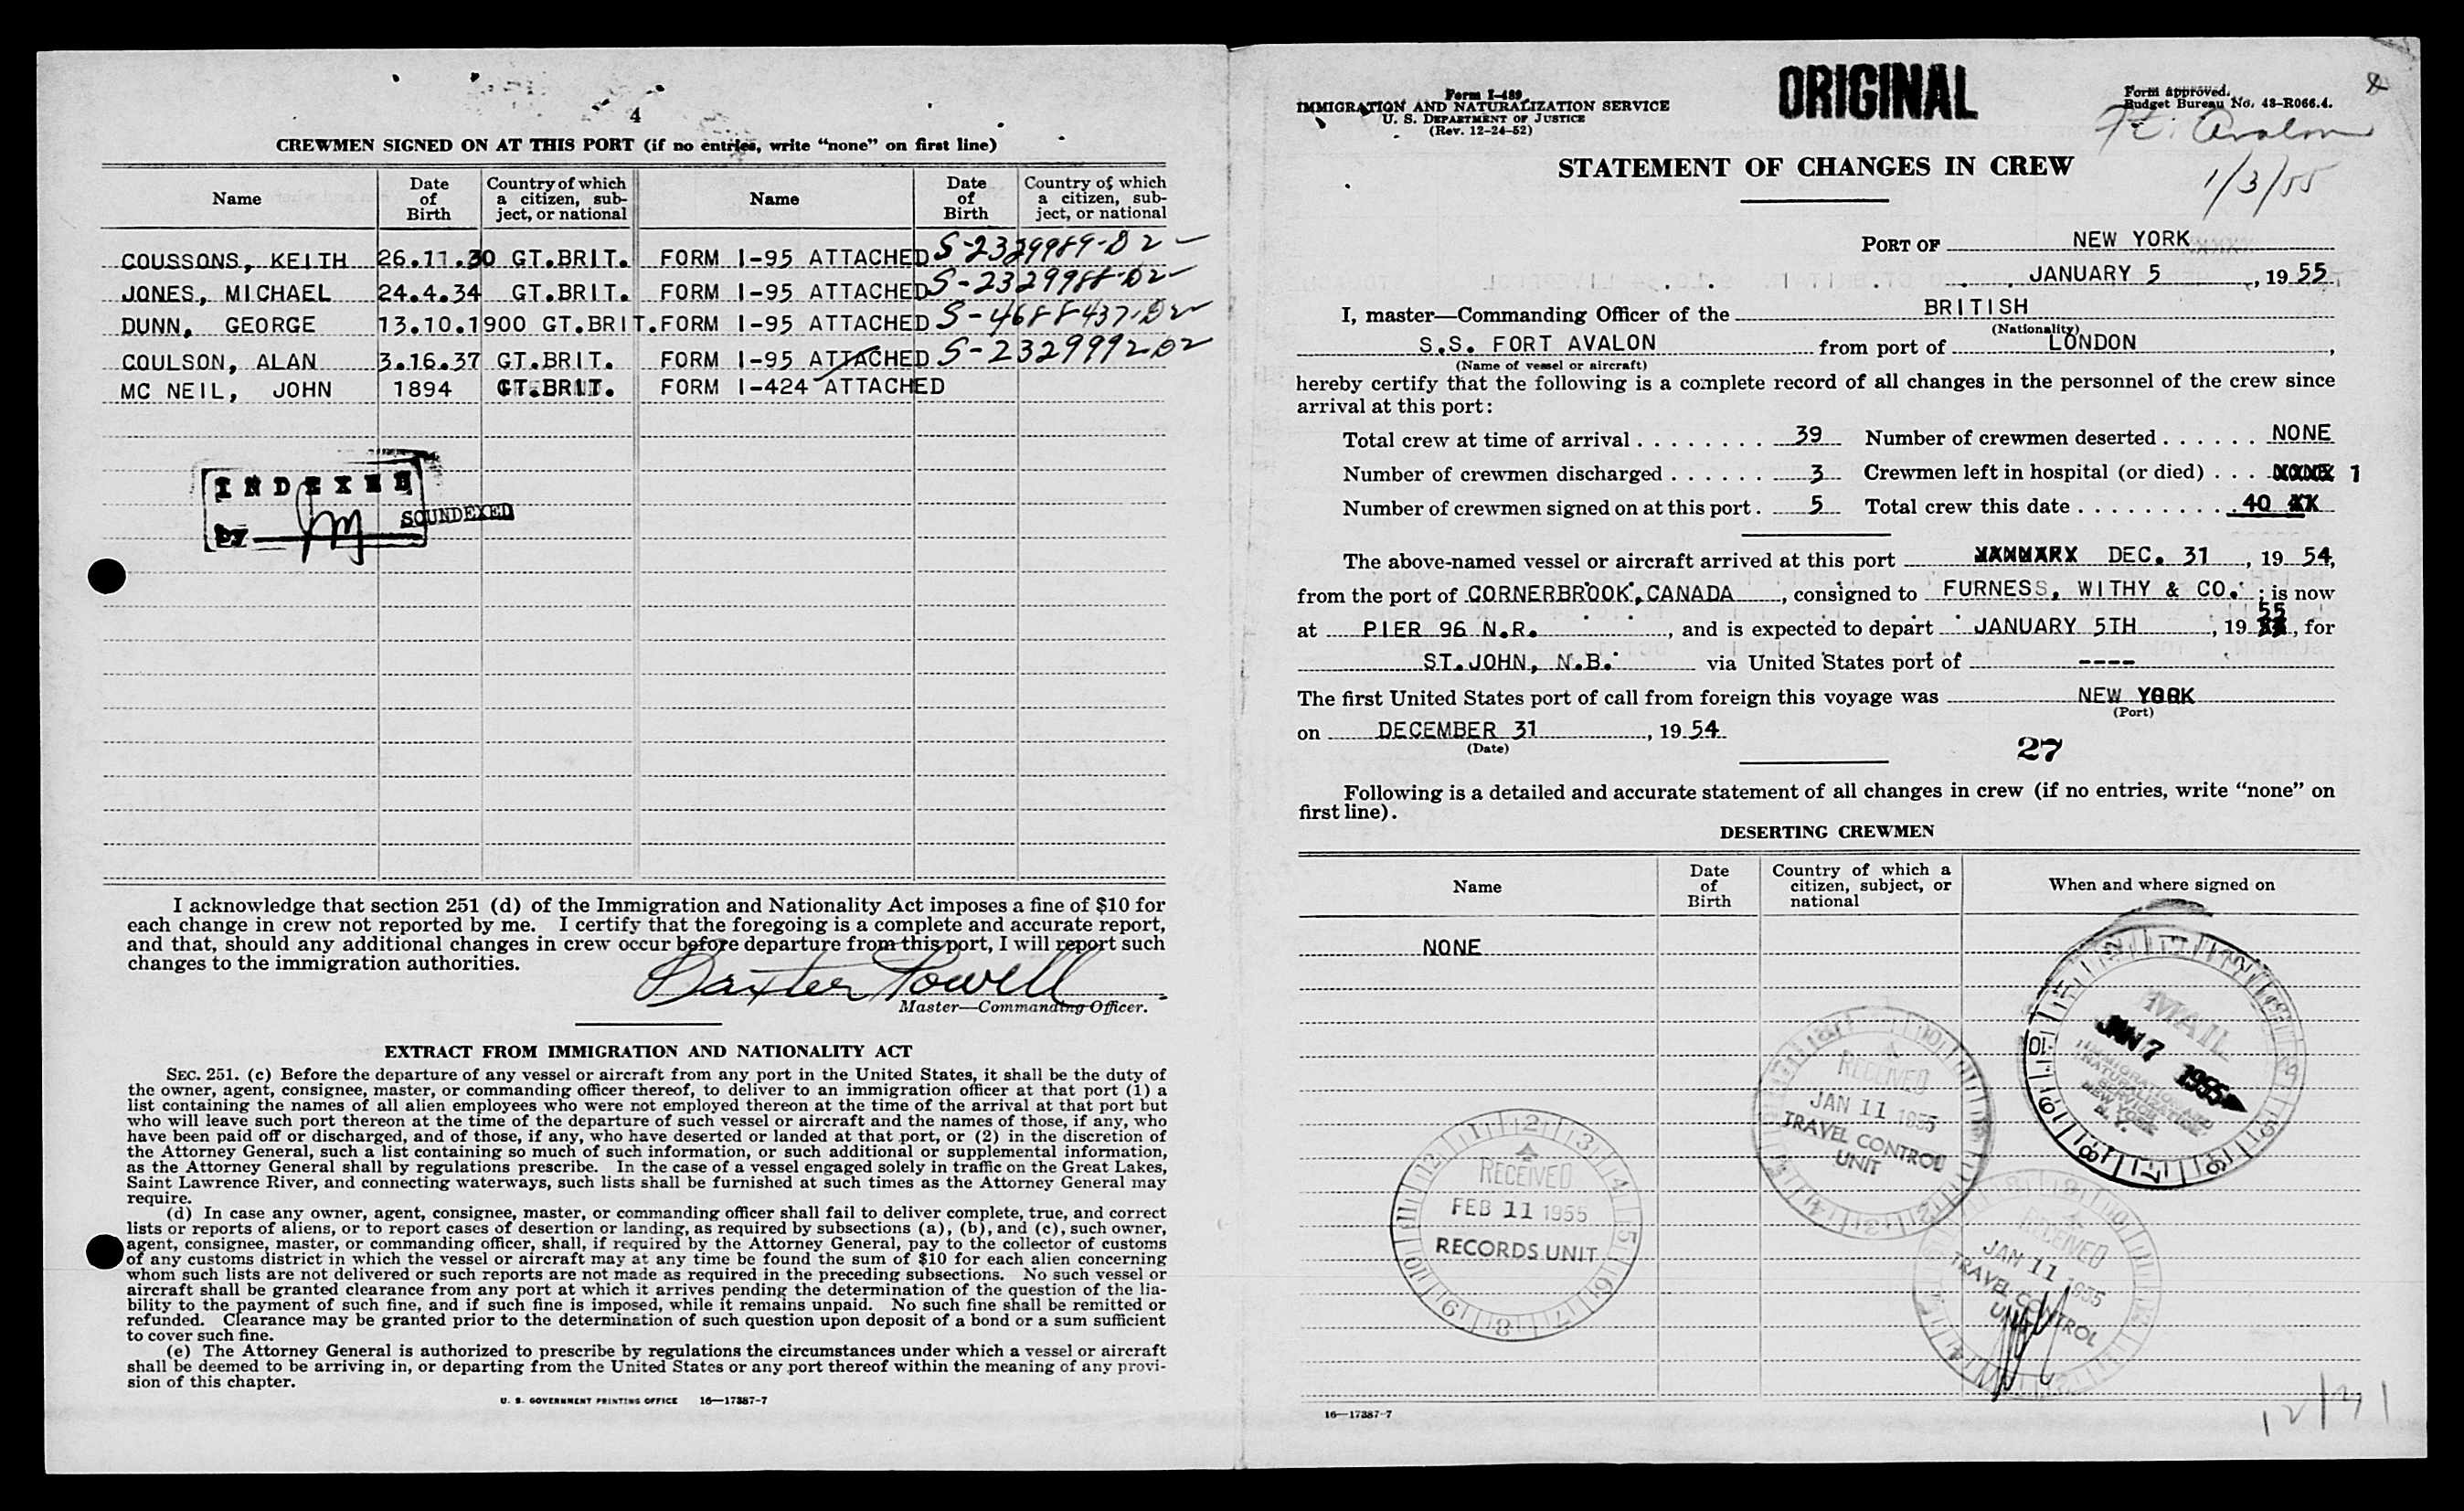 4
CREWMEN SIGNED ON AT THIS PORT (if no entries, write “none” on first line)
Name Date of Birth Country of which a citizen, subject, or national Name Date of Birth Country of which a citizen, subject, or national
COUSSONS, KEITH 26.11.30 GT.BRIT. FORM I-95 ATTACHED S-2329989-D2
JONES, MICHAEL 24.4.34 GT.BRIT. FORM I-95 ATTACHED S-2329988-D2
DUNN, GEORGE 13.10.1900 GT.BRIT. FORM I-95 ATTACHED S-4688437-D2
COULSON, ALAN 3.16.37 GT.BRIT. FORM I-95 ATTACHED S-2329992-D2
MC NEIL, JOHN 1894 GT.BRIT. FORM I-424 ATTACHED
INDEXED
by
SOUNDEXED
I acknowledge that section 251 (d) of the Immigration and Nationality Act imposes a fine of $10 for
each change in crew not reported by me. I certify that the foregoing is a complete and accurate report,
and that, should any additional changes in crew occur before departure from this port, I will report such
changes to the immigration authorities.
Baxter Powell
Master—Commanding Officer.
EXTRACT FROM IMMIGRATION AND NATIONALITY ACT
SEC. 251. (c) Before the departure of any vessel or aircraft from any port in the United States, it shall be the duty of
the owner, agent, consignee, master, or commanding officer thereof, to deliver to an immigration officer at that port (1) a
list containing the names of all alien employees who were not employed thereon at the time of the arrival at that port but
who will leave such port thereon at the time of the departure of such vessel or aircraft and the names of those, if any, who
have been paid off or discharged, and of those, if any, who have deserted or landed at that port, or (2) in the discretion of
the Attorney General, such a list containing so much of such information, or such additional or supplemental information,
as the Attorney General shall by regulations prescribe. In the case of a vessel engaged solely in traffic on the Great Lakes,
Saint Lawrence River, and connecting waterways, such lists shall be furnished at such times as the Attorney General may
require.
(d) In case any owner, agent, consignee, master, or commanding officer shall fail to deliver complete, true, and correct
lists or reports of aliens, or to report cases of desertion or landing, as required by subsections (a), (b), and (c), such owner,
agent, consignee, master, or commanding officer, shall, if required by the Attorney General, pay to the collector of customs
of any customs district in which the vessel or aircraft may at any time be found the sum of $10 for each alien concerning
whom such lists are not delivered or such reports are not made as required in the preceding subsections. No such vessel or
aircraft shall be granted clearance from any port at which it arrives pending the determination of the question of the lia-
bility to the payment of such fine, and if such fine is imposed, while it remains unpaid. No such fine shall be remitted or
refunded. Clearance may be granted prior to the determination of such question upon deposit of a bond or a sum sufficient
to cover such fine.
(e) The Attorney General is authorized to prescribe by regulations the circumstances under which a vessel or aircraft
shall be deemed to be arriving in, or departing from the United States or any port thereof within the meaning of any provi-
sion of this chapter.
U. S. GOVERNMENT PRINTING OFFICE 16—17387-7
Form I-489
IMMIGRATION AND NATURALIZATION SERVICE
U. S. DEPARTMENT OF JUSTICE
(Rev. 12-24-52)
ORIGINAL
Form approved.
Budget Bureau No. 43-R066.4.
Ft. Avalon
1/3/55
STATEMENT OF CHANGES IN CREW
PORT OF NEW YORK
JANUARY 5, 1955
I, master—Commanding Officer of the BRITISH
(Nationality)
S.S. FORT AVALON from port of LONDON,
(Name of vessel or aircraft)
hereby certify that the following is a complete record of all changes in the personnel of the crew since
arrival at this port:
Total crew at time of arrival 39 Number of crewmen deserted NONE
Number of crewmen discharged 3 Crewmen left in hospital (or died) 1
Number of crewmen signed on at this port 5 Total crew this date 40
The above-named vessel or aircraft arrived at this port DEC. 31, 1954,
from the port of CORNERBROOK, CANADA, consigned to FURNESS, WITHY & CO.; is now
at PIER 96 N.R., and is expected to depart JANUARY 5TH, 1955, for
ST.JOHN, N.B. via United States port of ----
The first United States port of call from foreign this voyage was NEW YORK
(Port)
on DECEMBER 31, 1954
(Date)
27
Following is a detailed and accurate statement of all changes in crew (if no entries, write “none” on
first line).
DESERTING CREWMEN
Name Date of Birth Country of which a citizen, subject, or national When and where signed on
NONE
MAIL
JAN 7 1955
IMMIGRATION AND
NATURALIZATION
SERVICE
NEW YORK
N. Y.
RECEIVED
JAN 11 1955
TRAVEL CONTROL
UNIT
RECEIVED
FEB 11 1955
RECORDS UNIT
RECEIVED
JAN 11 1955
TRAVEL CONTROL
UNIT
16—17387-7